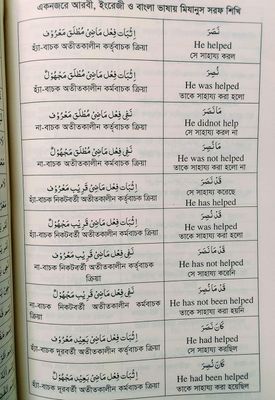 একনজরে আরবী, ইংরেজী ও বাংলা ভাষায় মিযানুস সরফ শিখি
اِثْبَات فِعْل مَاضِىْ مُطْلَق مَعْرُوْف
হ্যাঁ-বাচক অতীতকালীন কর্তৃবাচক ক্রিয়া
نَصَرَ
He helped
সে সাহায্য করল
اِثْبَات فِعْل مَاضِىْ مُطْلَق مَجْهُوْل
হ্যাঁ-বাচক অতীতকালীন কর্মবাচক ক্রিয়া
نُصِرَ
He was helped
তাকে সাহায্য করা হলো
نَفِى فِعْل مَاضِىْ مُطْلَق مَعْرُوْف
না-বাচক অতীতকালীন কর্তৃবাচক ক্রিয়া
مَا نَصَرَ
He didnot help
সে সাহায্য করল না
نَفِى فِعْل مَاضِىْ مُطْلَق مَجْهُوْل
না-বাচক অতীতকালীন কর্মবাচক ক্রিয়া
مَا نُصِرَ
He was not helped
তাকে সাহায্য করা হলো না
اِثْبَات فِعْل مَاضِىْ قَرِيْب مَعْرُوْف
হ্যাঁ-বাচক নিকটবর্তী অতীতকালীন কর্তৃবাচক ক্রিয়া
قَدْ نَصَرَ
সে সাহায্য করেছে
He has helped
اِثْبَات فِعْل مَاضِىْ قَرِيْب مَجْهُوْل
হ্যাঁ-বাচক নিকটবর্তী অতীতকালীন কর্মবাচক ক্রিয়া
قَدْ نُصِرَ
He was helped
তাকে সাহায্য করা হলো
نَفِى فِعْل مَاضِىْ قَرِيْب مَعْرُوْف
না-বাচক নিকটবর্তী অতীতকালীন কর্তৃবাচক ক্রিয়া
قَدْ مَا نَصَرَ
He has not helped
সে সাহায্য করেনি
نَفِى فِعْل مَاضِىْ قَرِيْب مَجْهُوْل
না-বাচক নিকটবর্তী অতীতকালীন কর্মবাচক ক্রিয়া
قَدْ مَا نُصِرَ
He has not been helped
তাকে সাহায্য করা হয়নি
اِثْبَات فِعْل مَاضِىْ بَعِيْد مَعْرُوْف
হ্যাঁ-বাচক দূরবর্তী অতীতকালীন কর্তৃবাচক ক্রিয়া
كَانَ نَصَرَ
He had helped
সে সাহায্য করছিল
اِثْبَات فِعْل مَاضِىْ بَعِيْد مَجْهُوْل
হ্যাঁ-বাচক দূরবর্তী অতীতকালীন কর্মবাচক ক্রিয়া
كَانَ نُصِرَ
He had been helped
তাকে সাহায্য করা হয়েছিল